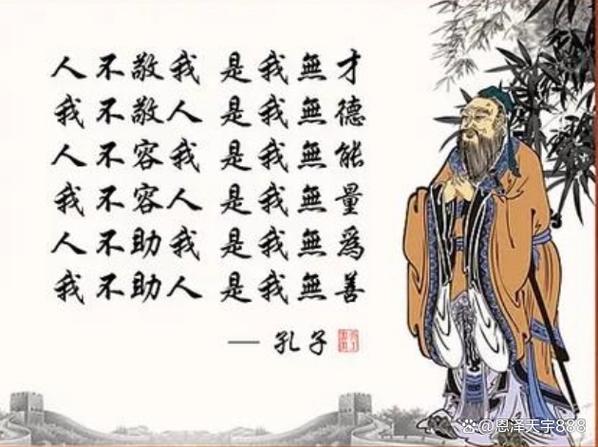 人不敬我 是我無才
我不敬人 是我無德
人不容我 是我無能
我不容人 是我無量
人不助我 是我無為
我不助人 是我無善
— 孔子
恩泽天宇888